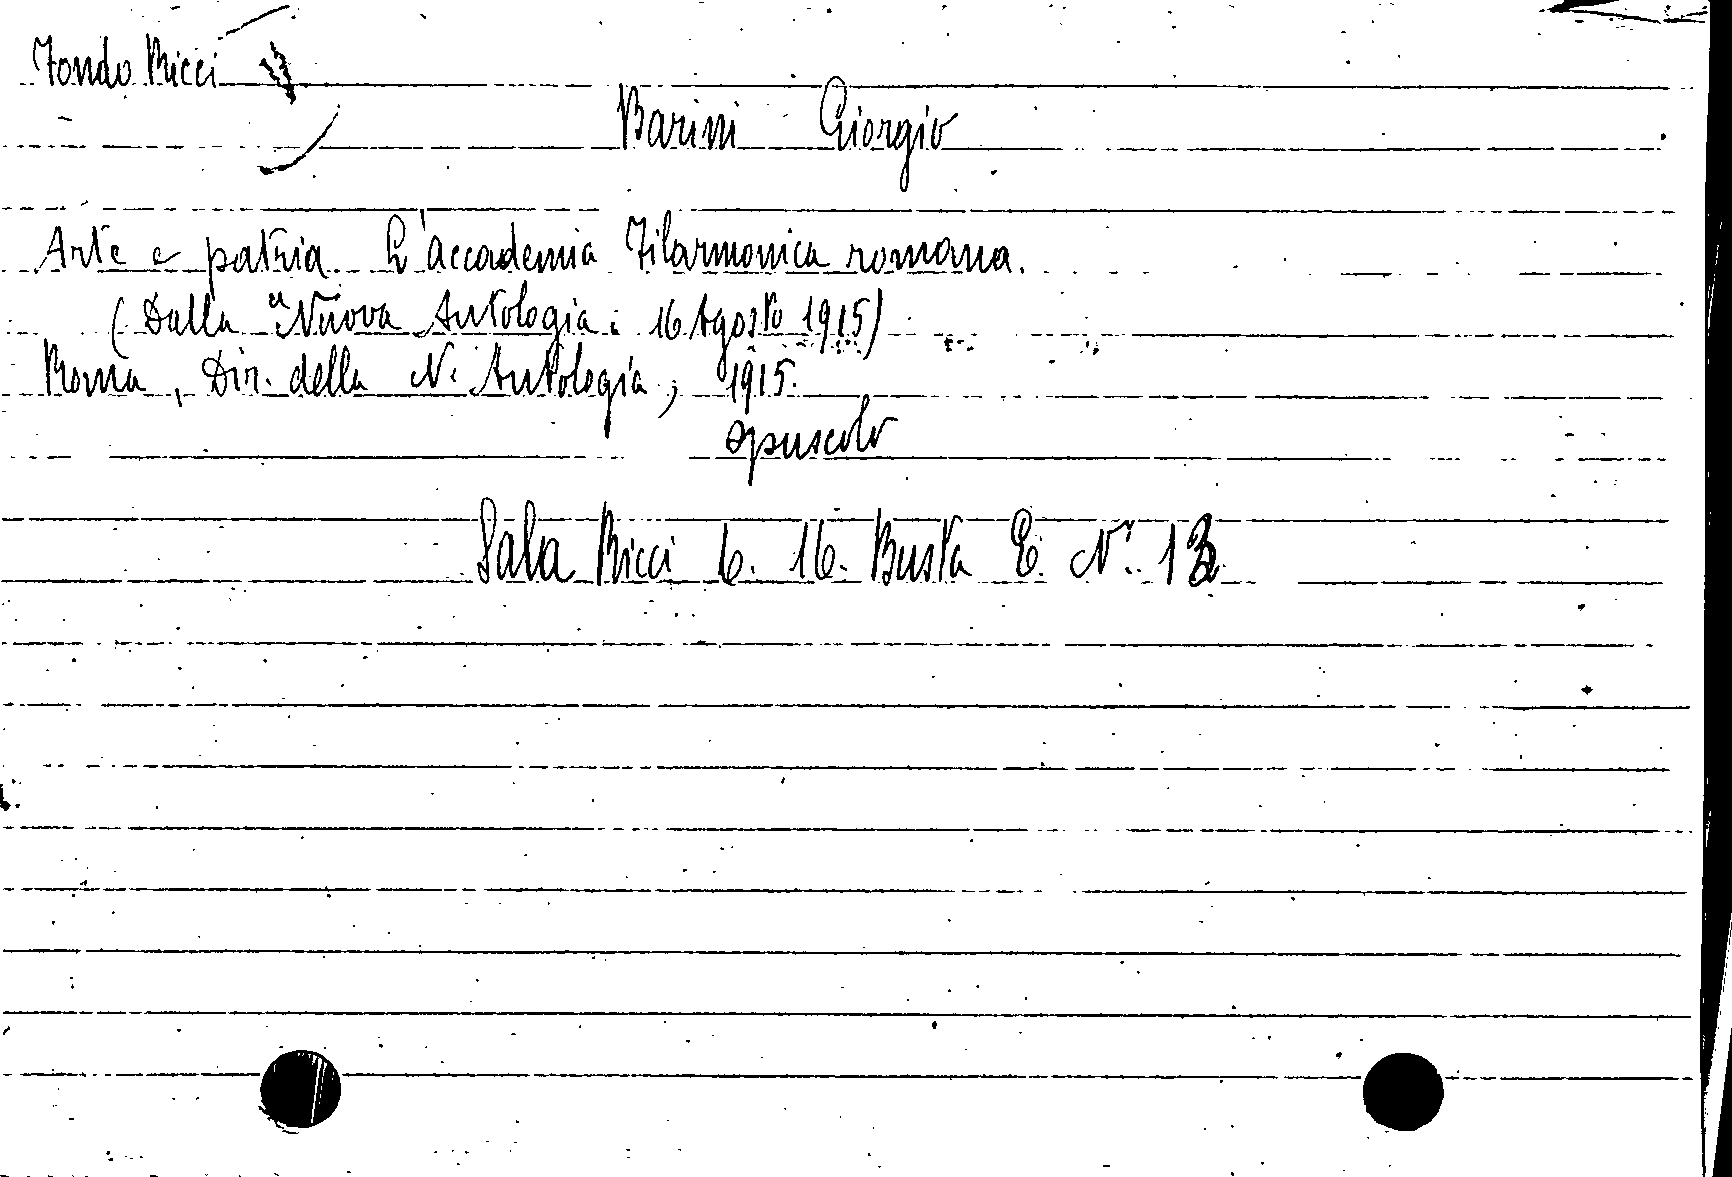 Fondo Ricci
Barini Giorgio
Arte e patria L'accademia Filarmonica romana.
(Dalla "Nuova Antologia: 16 Agosto 1915)
Roma, Dir. della N. Antologia, 1915.
opuscolo
Sala Ricci 6. 16. Busta E. N.